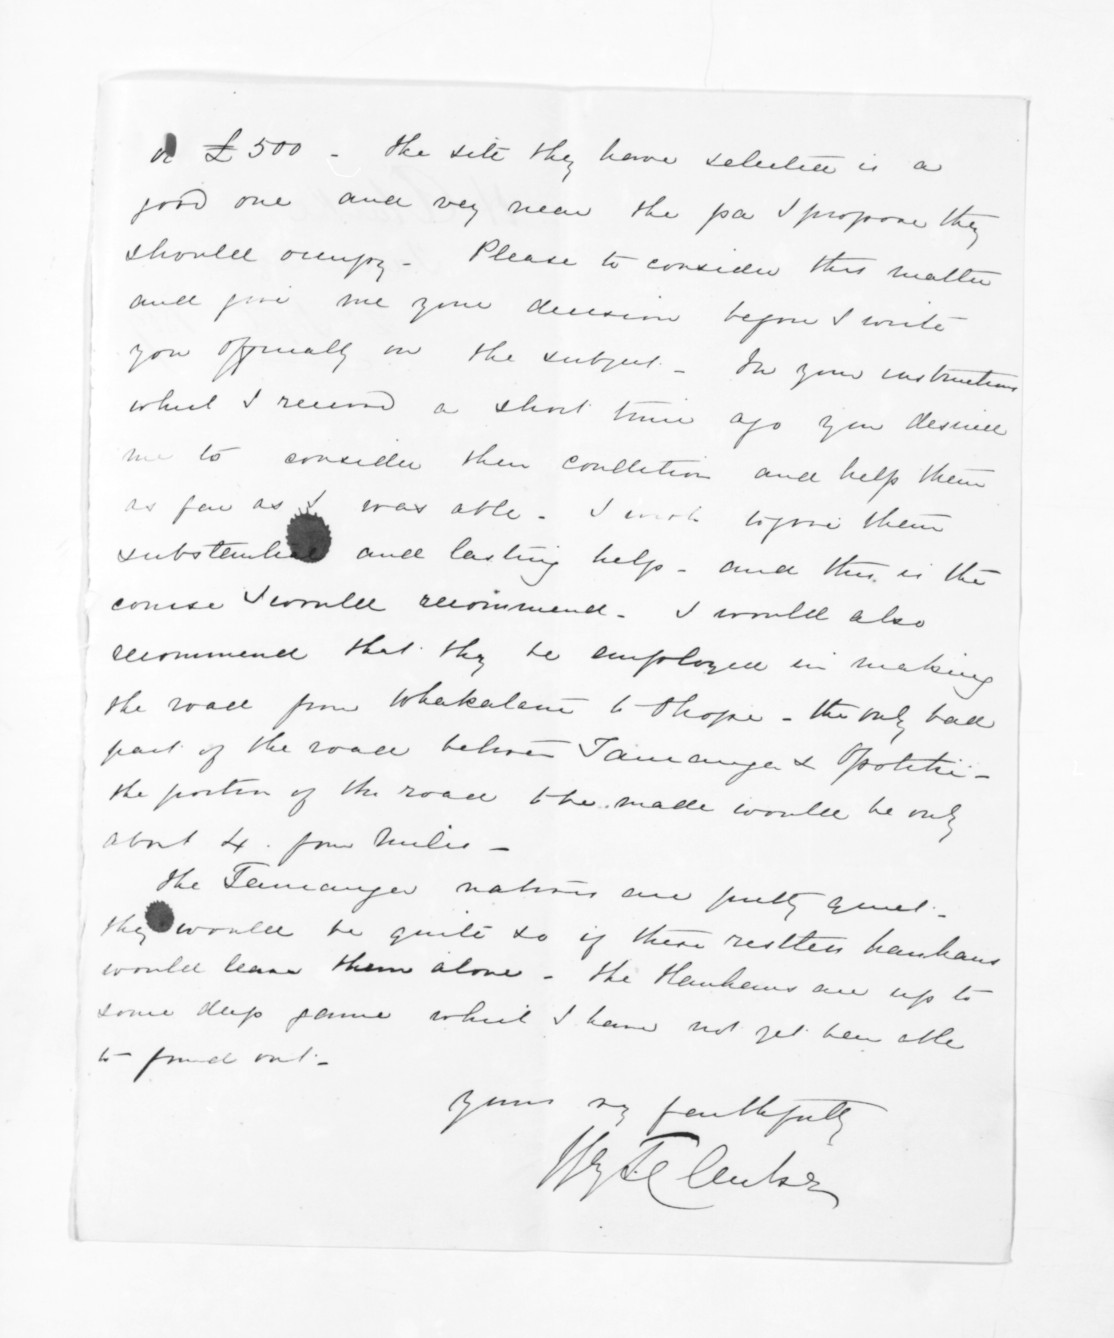 or £500 - the site they have selected is a
good one and very near the pa I propose they
should occupy - Please to consider this matter
and give me your decision before I write
you officially on the subject - In your instructions
which I received a short time ago you desired
me to consider their condition and help them
as far as I was able - I wish to give them
substantial and lasting help - and this is the
course I would recommend - I would also
recommend that they be employed in making
the road from Whakatane to Ohope - the only bad
part of the road between Tauranga & Opotiki -
the portion of the road to be made would be only
about 4. four miles -
the Tauranga natives are pretty quiet -
they would be quite so if these restless hauhaus
would leave them alone - the Hauhaus are up to
some deep game which I have not yet been able
to found out -
yours vy faithfully
H T Clarke